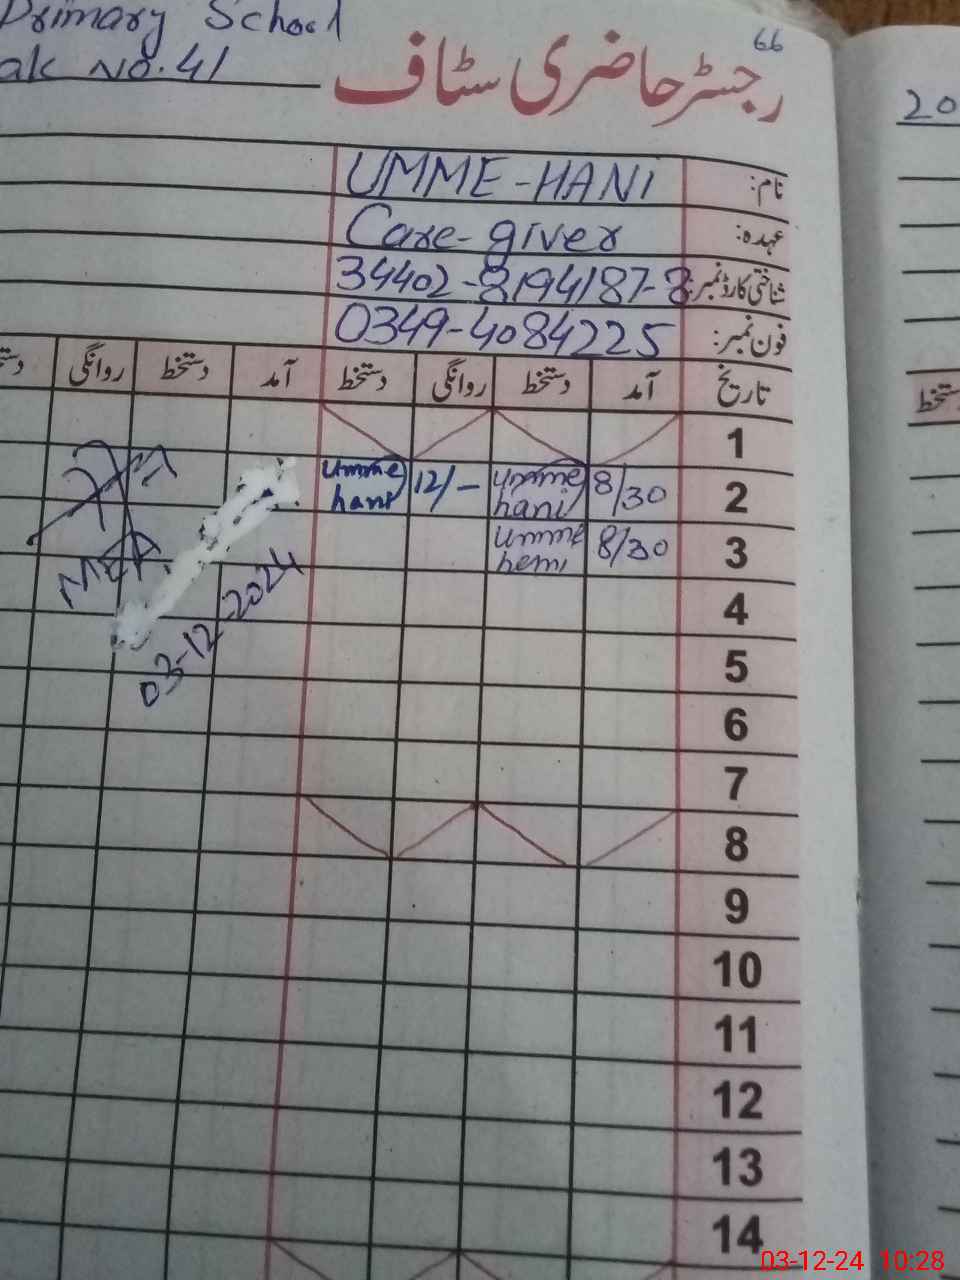 Primary School
ak No. 41
66
رجسٹر حاضری سٹاف
20
نام: UMME-HANI
عہدہ: Care-giver
شناختی کارڈ نمبر: 34402-8194187-8
فون نمبر: 0349-4084225
تاریخ آمد دستخط روانگی دستخط آمد دستخط روانگی
دستخط
1
2 8/30 umme hani 12/- umme hani
3 8/30 umme hani
4
5
6
7
8
9
10
11
12
13
14
MEA
03-12-2024
03-12-24 10:28